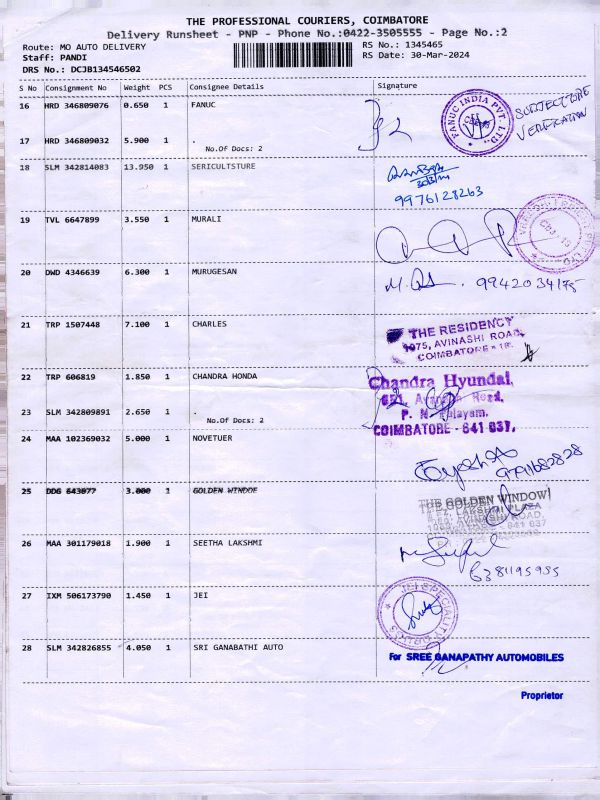 THE PROFESSIONAL COURIERS, COIMBATORE
Delivery Runsheet - PNP - Phone No.:0422-3505555 - Page No.:2
Route: MO AUTO DELIVERY RS No.: 1345465
Staff: PANDI RS Date: 30-Mar-2024
DRS No.: DCJB134546502
S No Consignment No Weight PCS Consignee Details Signature
16 HRD 346809076 0.650 1 FANUC
FANUC INDIA PVT. LTD.
SUBJECT TO RE VERIFICATION
17 HRD 346809032 5.900 1 .
No.Of Docs: 2
18 SLM 342814083 13.950 1 SERICULTSTURE
9976128263
19 TVL 6647899 3.550 1 MURALI
20 DWD 4346639 6.300 1 MURUGESAN
9942034175
21 TRP 1507448 7.100 1 CHARLES
THE RESIDENCY
1075, AVINASHI ROAD,
COIMBATORE - 18.
22 TRP 606819 1.850 1 CHANDRA HONDA
Chandra Hyundai,
Road,
P. N. Palayam,
COIMBATORE - 641 037.
23 SLM 342809891 2.650 1 .
No.Of Docs: 2
24 MAA 102369032 5.000 1 NOVETUER
25 DDG 643077 3.000 1 GOLDEN WINDOE
THE GOLDEN WINDOW
LAKSHMI PLAZA
AVINASHI ROAD,
641 037
26 MAA 301179018 1.900 1 SEETHA LAKSHMI
27 IXM 506173790 1.450 1 JEI
JEI SPECIALITY
28 SLM 342826855 4.050 1 SRI GANABATHI AUTO
For SREE GANAPATHY AUTOMOBILES
Proprietor